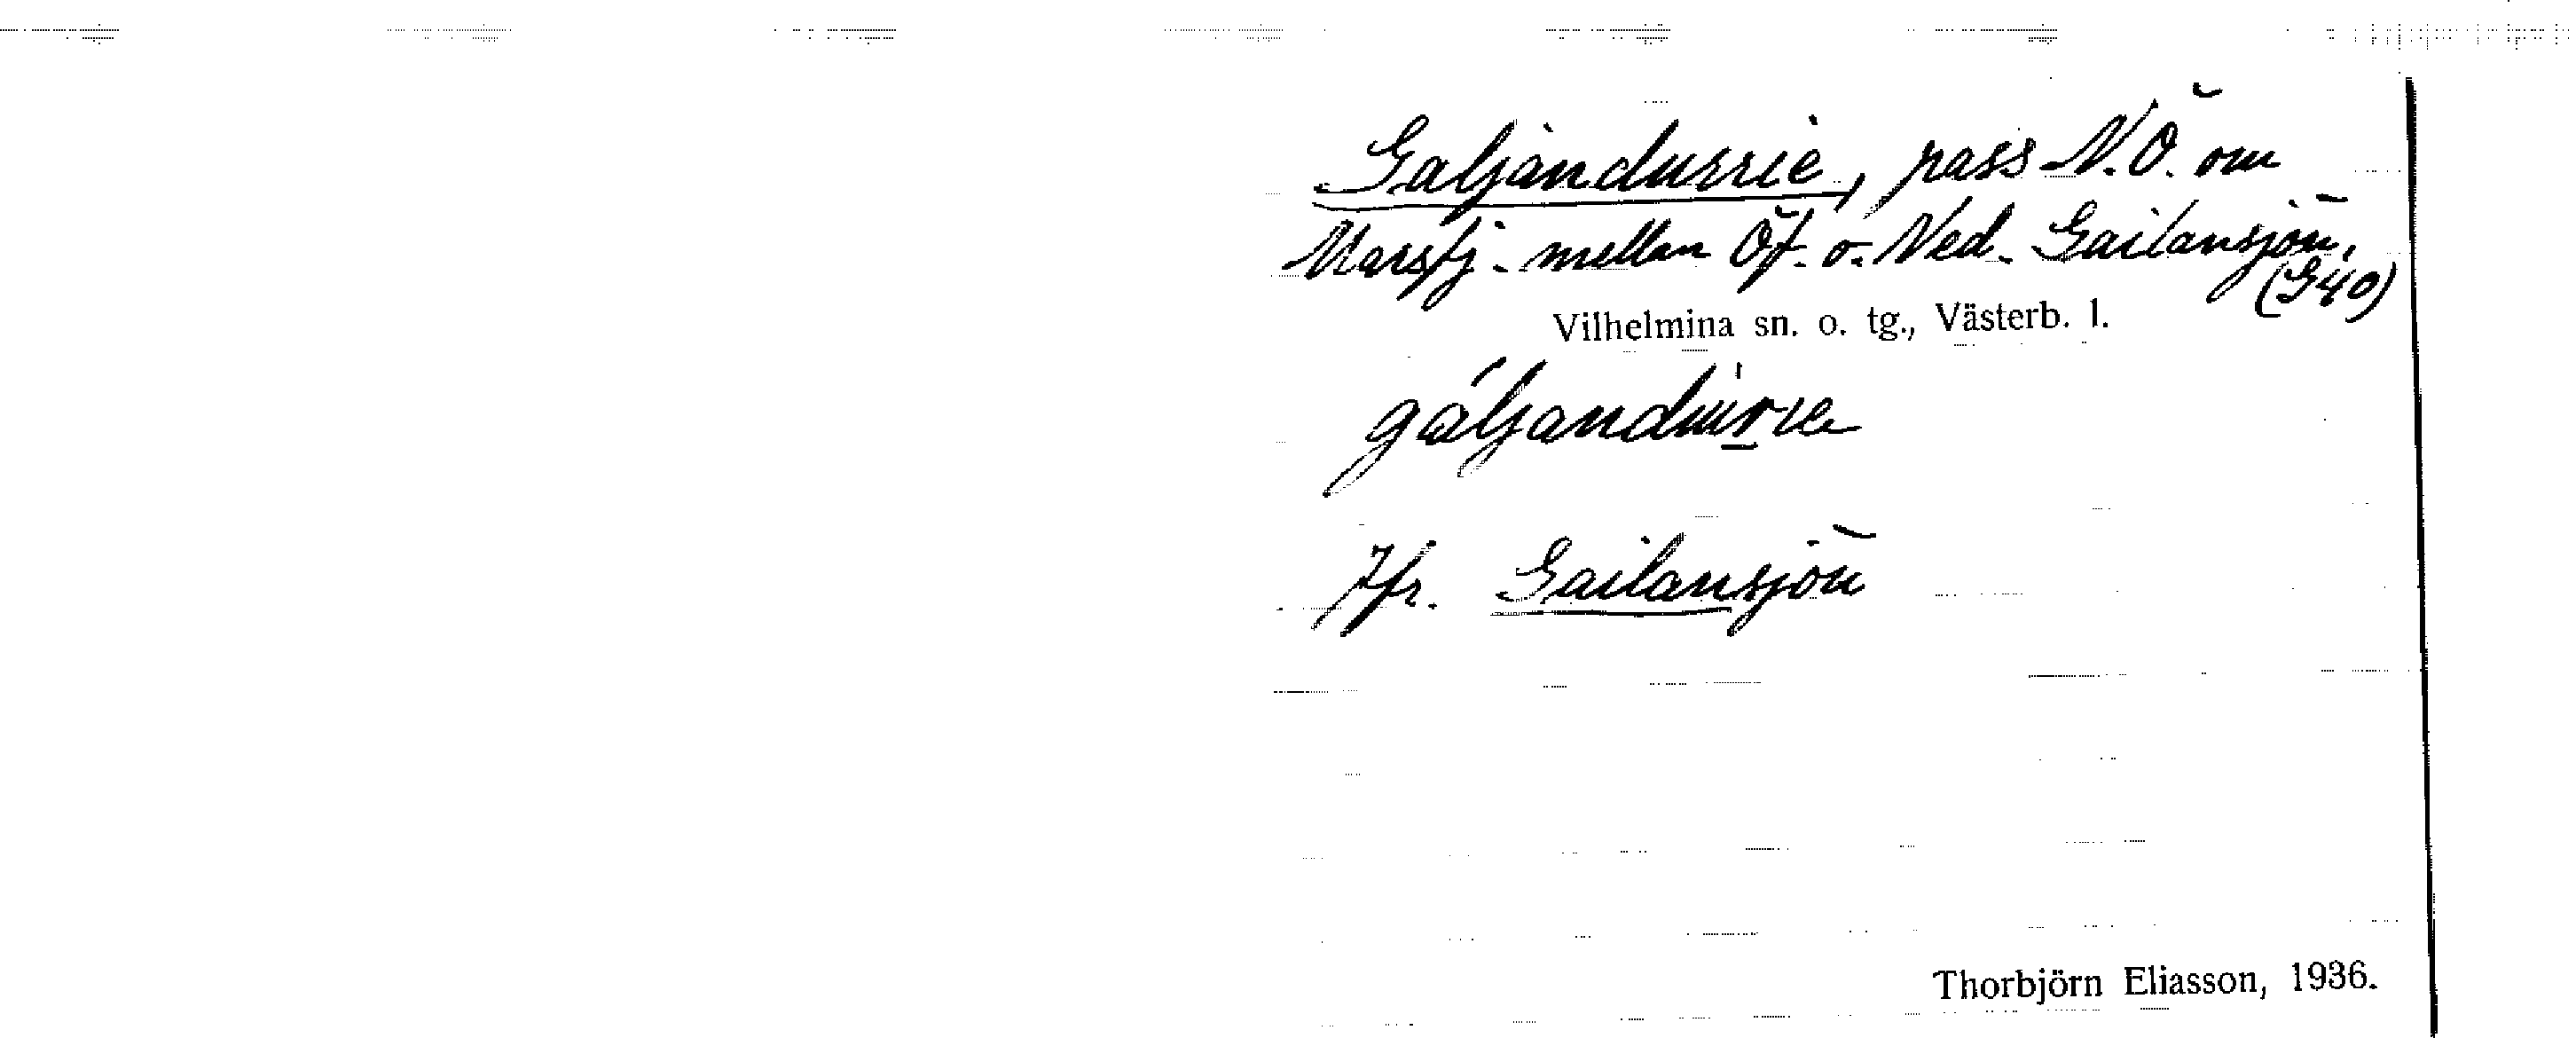 Galjandurrie, pass N.Ö. om
Marsfj. mellan Öf. o. Ned. Gailansjön,
(G40)
Vilhelmina sn. o. tg., Västerb. l.
gáljandurrie
Jfr. Gailansjön
Thorbjörn Eliasson, 1936.